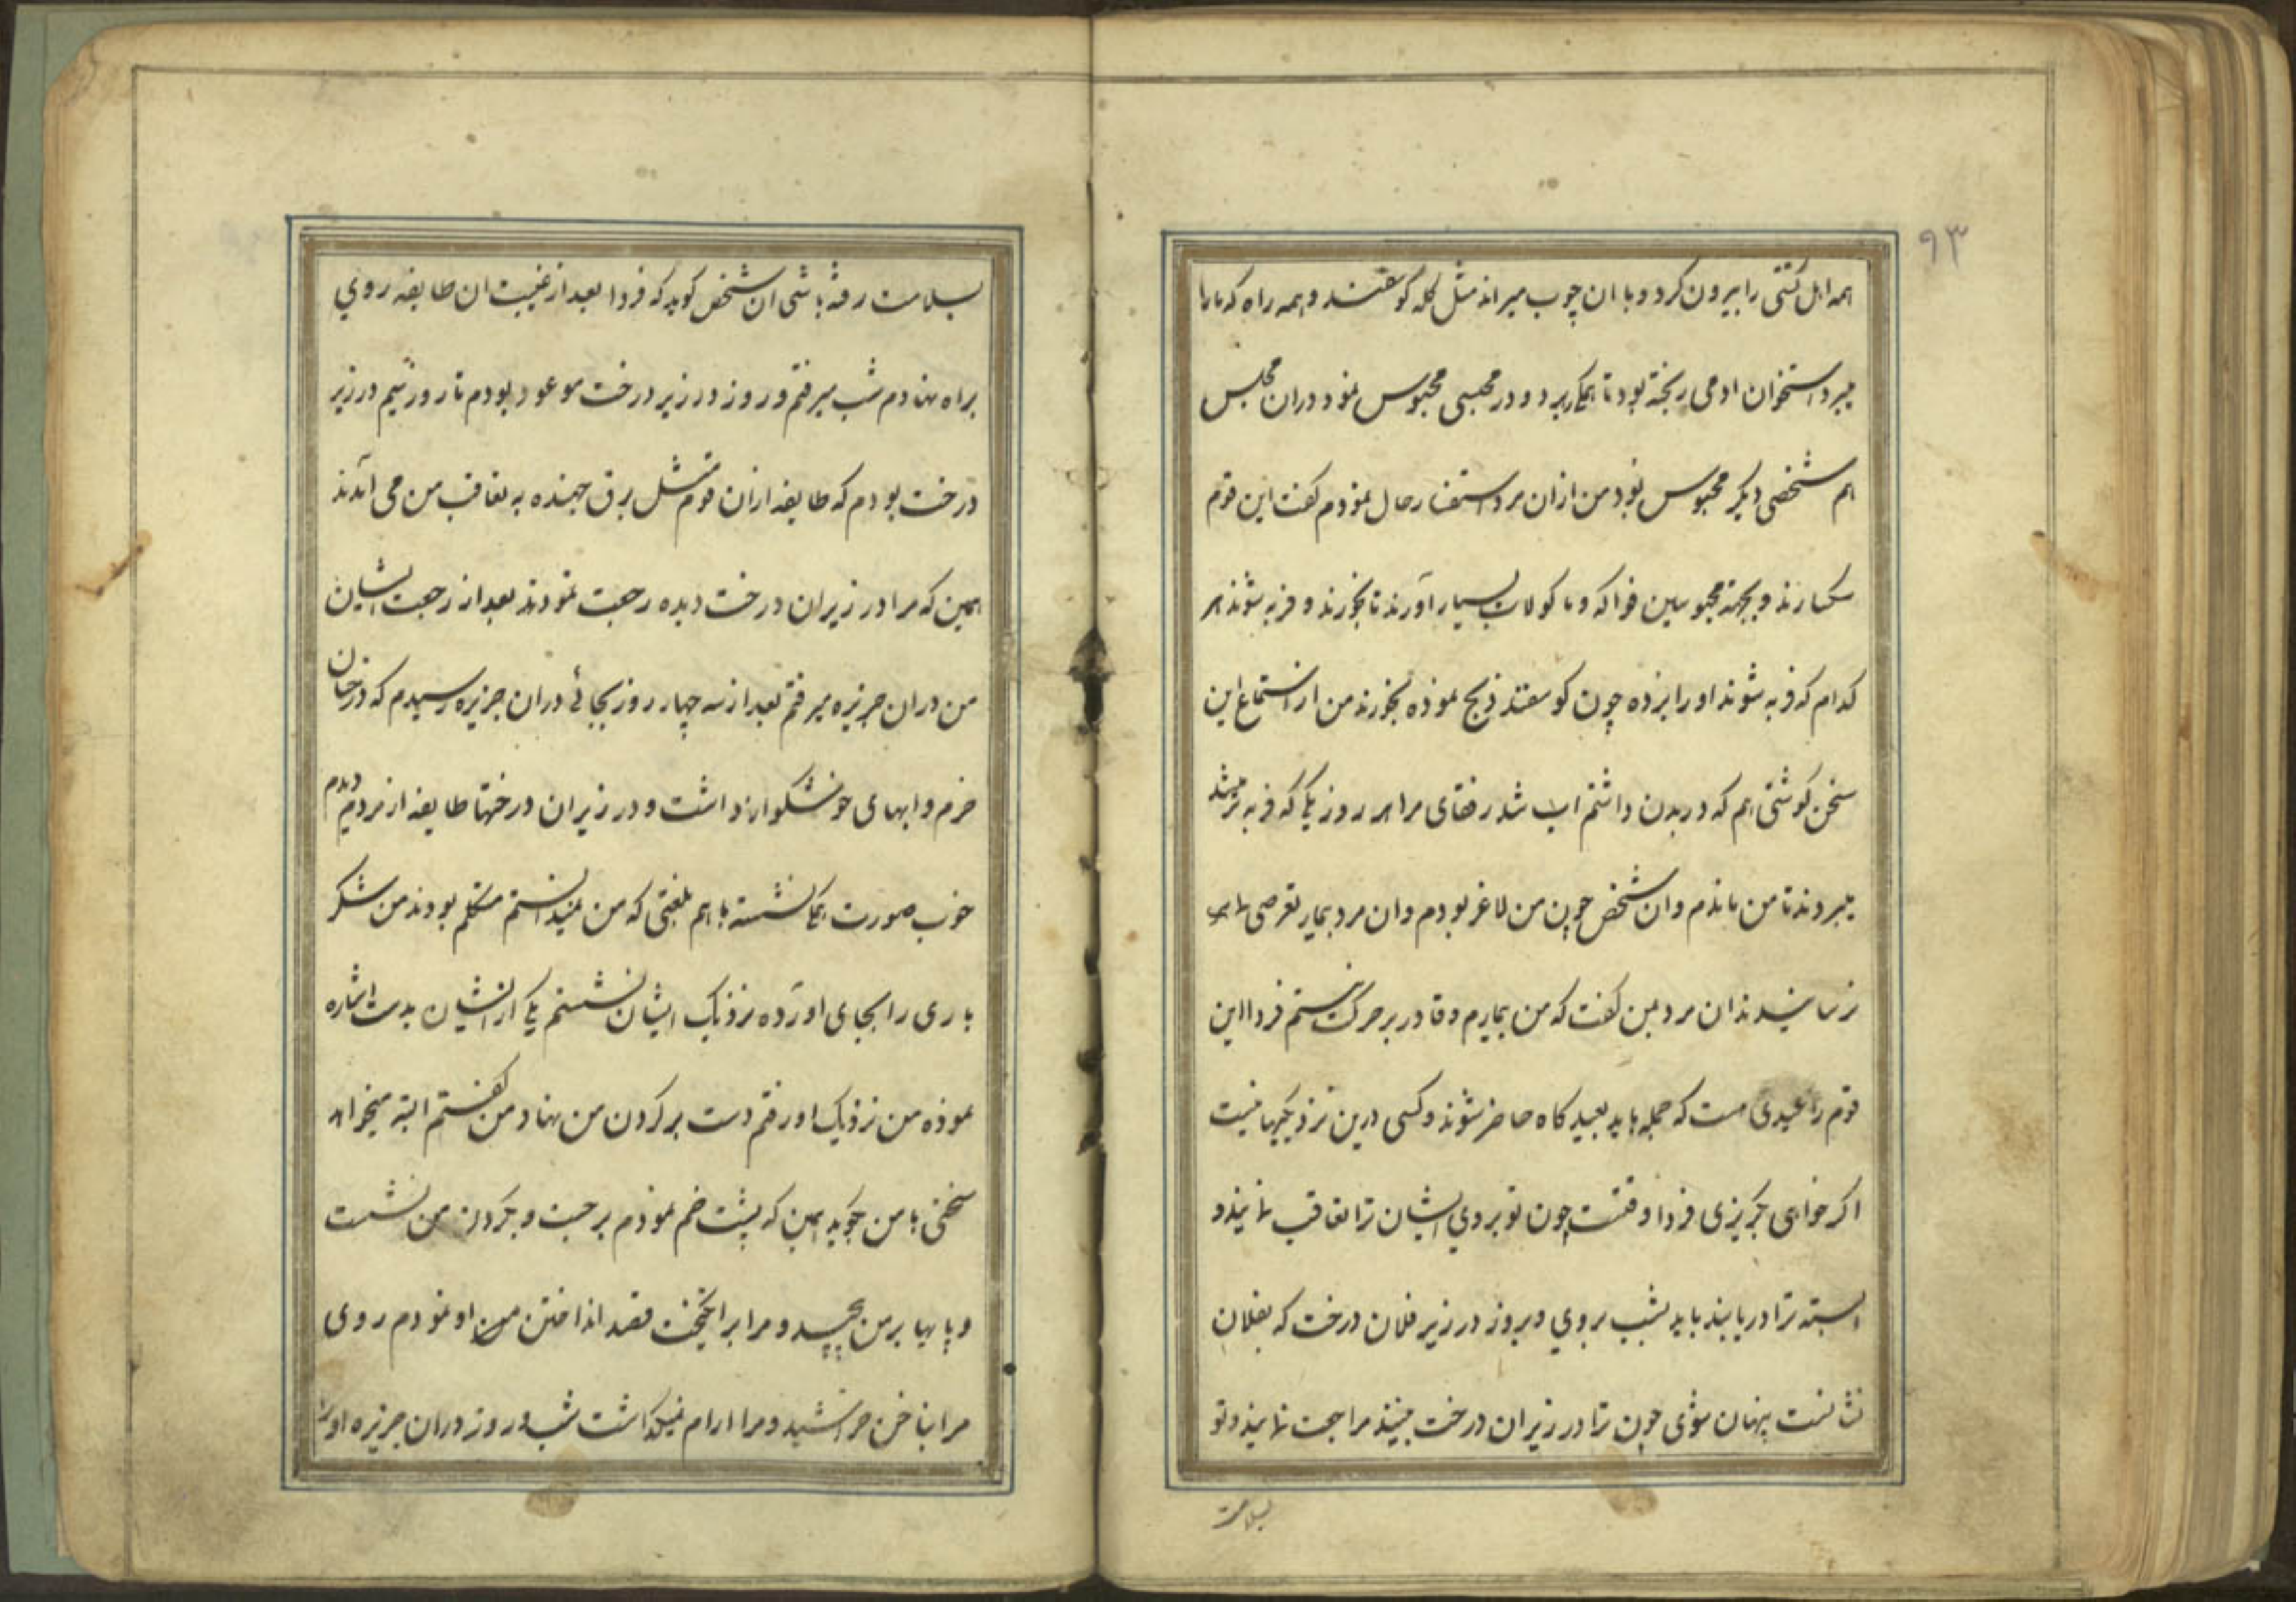 ۹۳
همه اهل کشتی را بیرون کرد و با ان چوب میراند مثل کله کوسفند و همه راه که مارا
میبرد استخوان ادمی ریخته بود تا بمکا برد و در محبسی محبوس نمود در ان مجلس
هم شخصی دیکر محبوس بود من ازان مرد استفسار حال نمودم کفت این قوم
سکسارند و بجهة محبوسین فواکه و ماکولات بسیار آورند تا بخورند و فربه شوند هر
کدام که فربه شوند او را برده چون کوسفند ذبح نموده بخورند من از استماع این
سخن کوشتی هم که در بدن داشتم اب شد رفقای مرا هر روز یکی که فربه تر میشد
میبردند تا من ماندم و ان شخص چون من لاغر بودم و ان مرد بیمار تعرضی بما
نرسانیدند ان مرد بمن کفت که من بیمارم و قادر بر حرکت نیستم فردا این
قوم را عیدی هست که جمله باید بعید کاه حاضر شوند و کسی درین نزدیکیها نیست
اکر خواهی بکریزی فردا وقتست چون تو بروی ایشان ترا تعاقب نمایند و
البته ترا دریابند باید بشب بروی و بروز در زیر فلان درخت که بفلان
نشانست پنهان شوی چون ترا در زیر ان درخت بینند مراجعت نمایند و تو
بسلامت
بسلامت رفته باشی ان شخص کوید که فردا بعد از غیبت ان طایفه روی
براه نهادم شب میرفتم و روز در زیر درخت موعود بودم تا روز سیم در زیر
درخت بودم که طایفه ازان قوم مثل برق جهنده به تعاقب من می آمدند
همین که مرا در زیر ان درخت دیده رجعت نمودند بعد از رجعت ایشان
من دران جزیره میرفتم بعد از سه چهار روز بجائی دران جزیره رسیدم که درختان
خرم و ابهای خوشکوار داشت و در زیر ان درختها طایفه از مردم دیدم
خوب صورت بمکا نشسته با هم بلغتی که من نمیدانستم متکلم بودند من شکر
باری را بجای اورده نزدیک ایشان نشستم یکی از ایشان بدست اشاره
نموده من نزدیک او رفتم دست بر کردن من نهاد من کفتم البته میخواهد
سخنی با من بکوید همین که پشت خم نمودم برجست و بکردن من نشست
و پاهیا بر من پیچید و مرا برانکیخت قصد انداختن من او نمودم روی
مرا بناخن خراشید و مرا ارام نمیکذاشت شب و روز دران جزیره او را